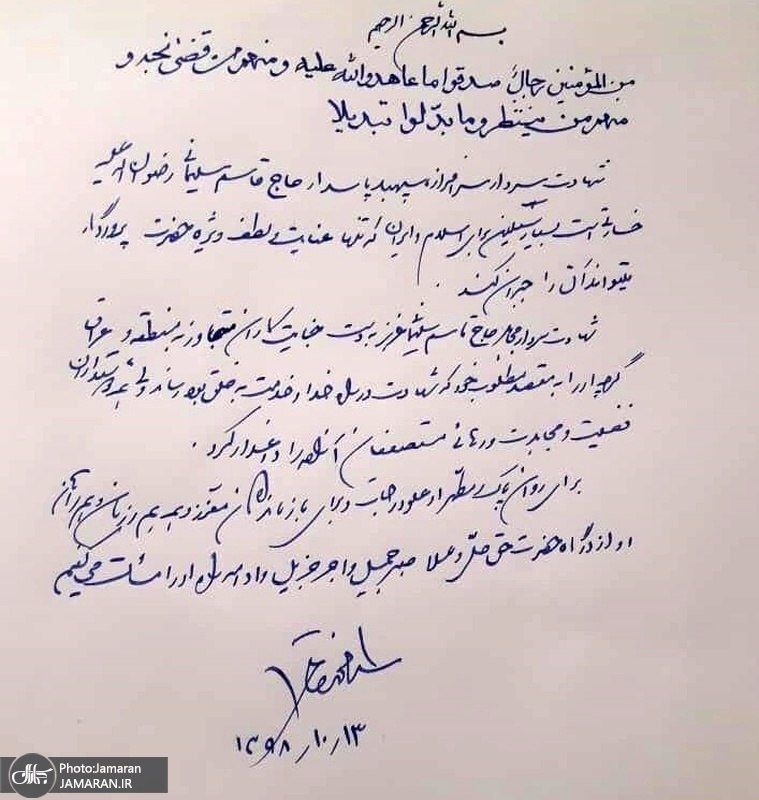 بسم الله الرحمن الرحیم
من المؤمنین رجالٌ صدقوا ما عاهدوالله علیه و منهم من قضی نحبه و
منهم من ینتظر و ما بدّلوا تبدیلا
شهادت سردار سرافراز، سپهبد پاسدار حاج قاسم سلیمانی رضوان الله علیه
خسارتی است بسیار سنگین برای اسلام و ایران که تنها عنایت و لطف ویژه حضرت پروردگار
میتواند آن را جبران کند.
شهادت سردار مجاهد حاج قاسم سلیمانی عزیز به دست جنایت کاران متجاوز به منطقه و عراق
گرچه او را به مقصد مطلوب خود که شهادت در راه خدا و خدمت به خلق بود رساند ولی همه دوستداران
فضیلت و مجاهدت و رهائی مستضعفان را داغدار کرد.
برای روان پاک و مطهر او علو درجات و برای بازماندگان معزز و همه همرزمان و همراهان
او از درگاه حضرت حق جلّ و علا صبر جمیل و اجر جزیل و ادامه راه او را مسئلت می‌کنیم
سید محمد خاتمی
۱۳۹۸/۱۰/۱۳
Photo:Jamaran
JAMARAN.IR